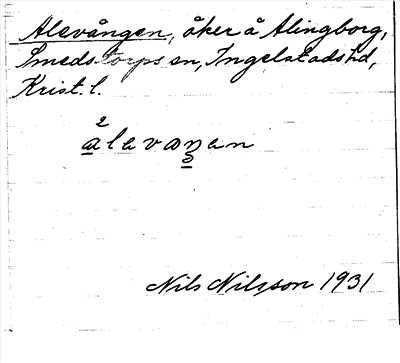 Alavången, åker å Alingborg,
Smedstorps sn, Ingelstads hd,
Krist. l.
2
alavaŋen
Nils Nilsson 1931